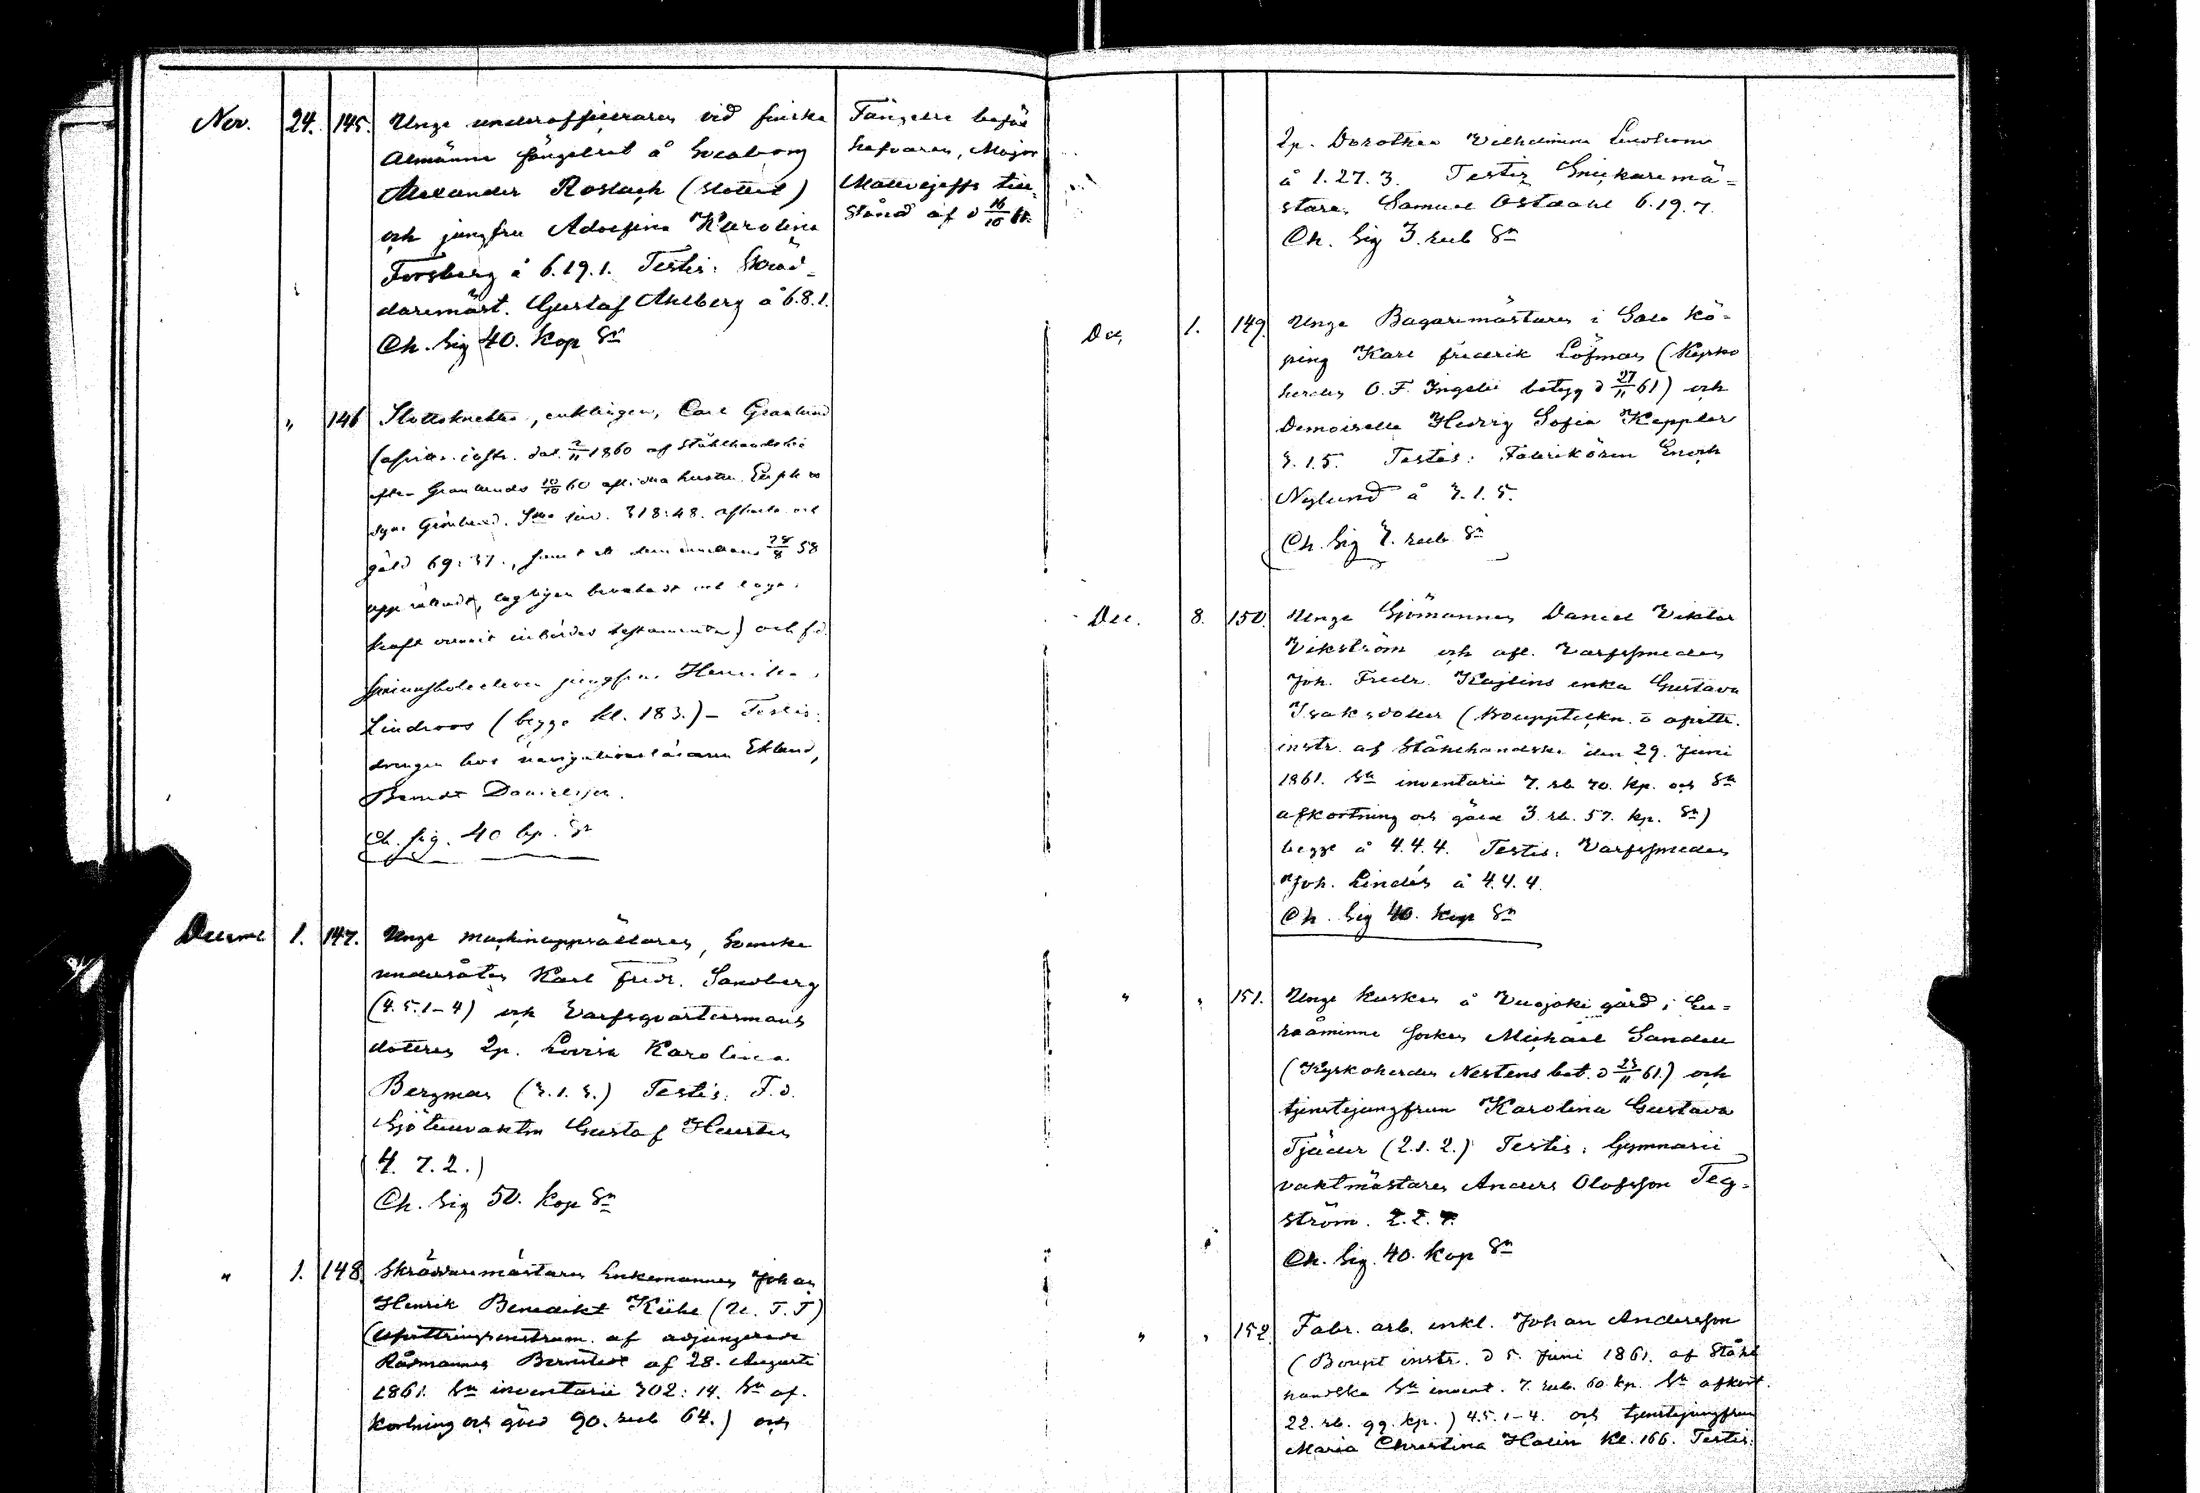 Nov. 24. 145. Unge underofficeraren vid finska
Almänna fängelset å Sveaborg
Alexander Roslach (slottet)
och jungfru Adolfina Karolina
Forsberg å 6.19.1. Testis: Skräd-
daremäst. Gustaf Ahlberg å 6.8.1.
Ch. Sig 40. Kop Sr
Fängelse befäl
hafvaren, Major
Matvejeffs till-
stånd af d 16/10 61.
" 146 Slottsknekten, enklingen, Carl Granlund
(afvitr. instr. dat. 2/11 1860 af Stålhandske
efter Granlunds 10/10 60 aflidna hustru
Granlund. Sma inv. 318:48. afkortn. och
gäld 69:37., samt ett dem emellan 28/8 58
upprättadt, lagligen bevakadt och laga
kraft vunnit inbördes testamente) och f.d.
spinnhuseleven jungfrun Henrika
Lindroos (begge kl. 183.) - Testis:
drengen hos navigationsläraren Eklund,
Berndt Danielsson.
Ch. sig. 40 kp. Sr
Decem 1. 147. Unge Maskinupprättaren, Svenska
undersåten Karl Fredr. Sandberg
(4.5.1-4) och Varfsqvartersmans
dottren Jp. Lovisa Karolina
Bergman (3.1.3.) Testis: F.d.
Sjötullvaktm Gustaf
(4. 7. 2.)
Ch. Sig 50. Kop Sr
" 1. 148. Skräddaremästaren Enkemannen Johan
Henrik Benedikt Kühl (U. T. T)
(Afvittringsinstrum. af adjungerade
Rådmannen af 28. Augusti
1861. Sa inventarii 302:14. Sa af-
kortning och gäld 90. rub 64.) och
Jp. Dorothea Vilhelmina Lindstrom
å 1.27.3. Testis Snickaremä-
staren Samuel Ostdahl 6.19.7.
Ch. Sig 3. rub Sr
Dec 1. 149. Unge Bagaremästaren i Salo Kö-
ping Karl Fredrik Löfman (Kyrko
herden O. F. Ingelii betyg d 27/11 61) och
Demoiselle Hedvig Sofia Keppler
3.1.5. Testis: Fabrikören Enoch
Nylund å 3.1.5.
Ch. Sig 3. rub Sr
Dec. 8. 150. Unge Sjömannen Daniel Viktor
Vikström och afl. Varfssmeden
Joh. Fredr. Kajlins enka Gustava
Isaksdotter (Bouppteckn. o afvittr.
instr. af Stålhandske den 29. Juni
1861. Sa inventarii 7. rb 70. kp. och Sa
afkortning och gäld 3. rb. 57. kp. Sr)
begge å 4.4.4. Testis: Varfssmeden
Joh. Lindén å 4.4.4.
Ch. Sig 40. Kop Sr
" " 151. Unge Kusken å Vuojoki gård i Eu-
raåminne socken Michael Sandell
(Kyrkoherden Nestens bet. d 23/11 61.) och
tjenstejungfrun Karolina Gustava
Tjäder (2.1.2.) Testis: Gymnasii
vaktmästaren Anders Olofsson Teg-
ström. 2.2.4.
Ch. Sig. 40. Kop Sr
" " 152. Fabr. arb. enkl. Johan Andersson
(Boupt instr. d 5. Juni 1861. af Stål
handske Sa invent. 7. rub. 60. kp. Sa afkort.
22. rb. 99. kp.) 4.5.1-4. och tjenstejungfrun
Maria Christina Halin Kl. 166. Testis: